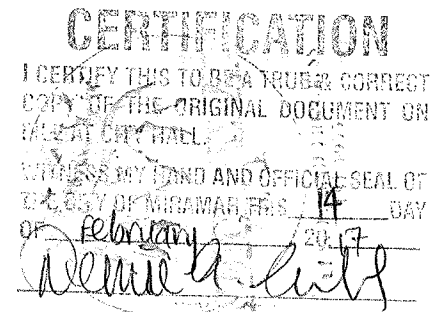 CERTIFICATION
I CERTIFY THIS TO BE A TRUE & CORRECT
COPY OF THE ORIGINAL DOCUMENT ON
FILE AT CITY HALL.
WITNESS MY HAND AND OFFICIAL SEAL OF
THE CITY OF MIRAMAR THIS 14 DAY
OF February 2017